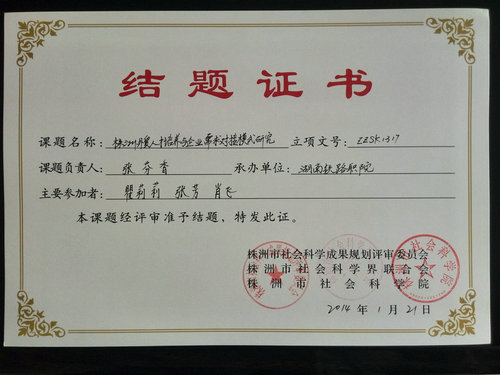 结题证书
课题名称：株洲市复人才培养与企业需求对接模式研究 立项文号：ZZSK1317
课题负责人：张芬香 承办单位：湖南铁路职院
主要参加者：瞿莉莉 张芳 肖飞
本课题经评审准予结题，特发此证。
株洲市社会科学成果规划评审委员会
株洲市社会科学界联合会
株洲市社会科学院
2014年1月21日